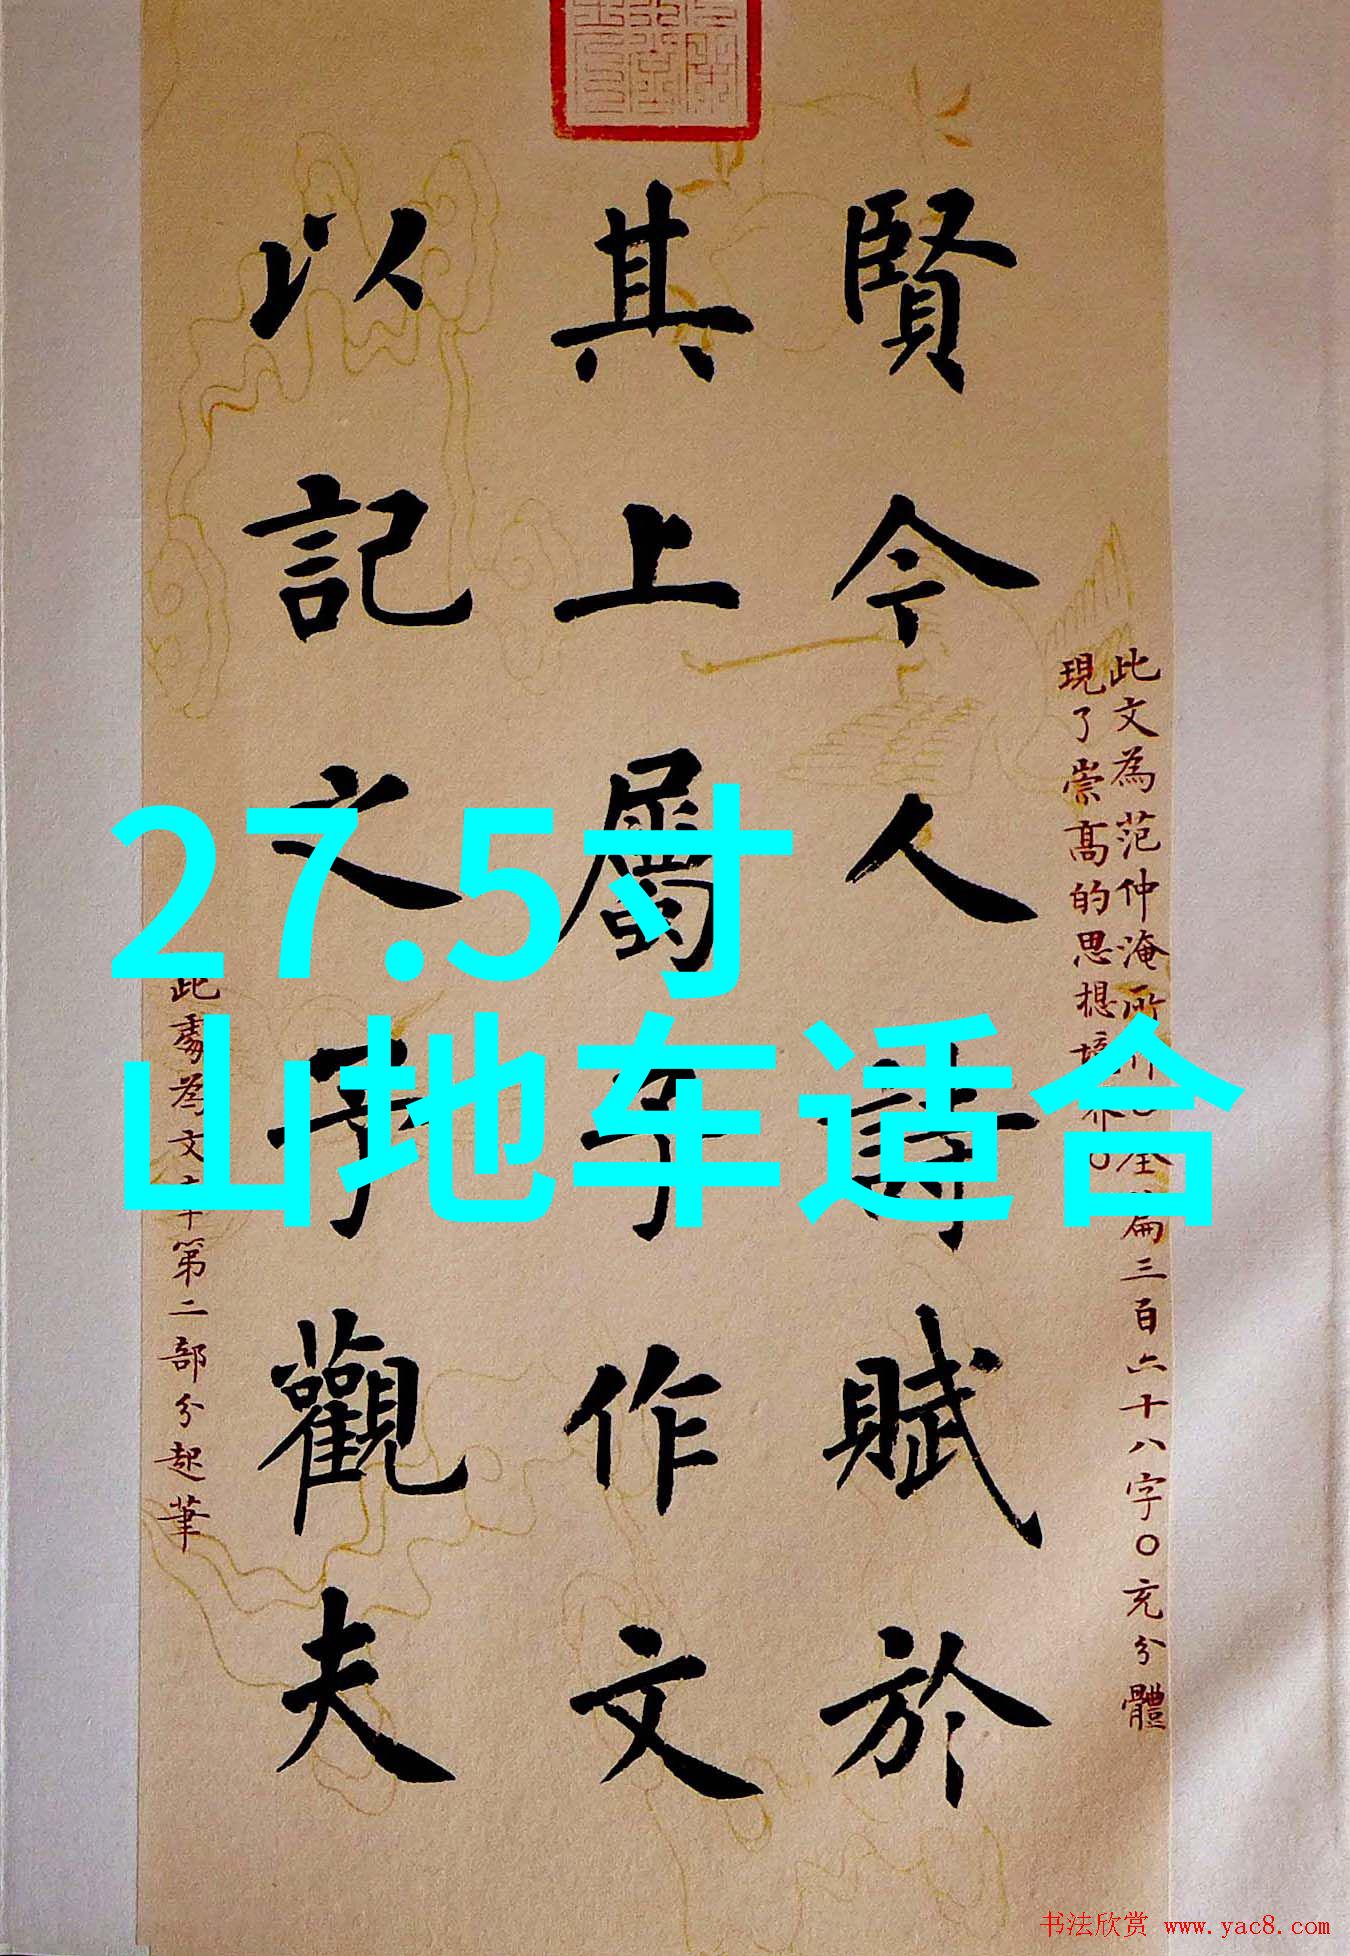 27.5寸
山地车适合
此文為范仲淹所作〇全篇三百六十八字〇充分體
現了崇高的思想境界〇
賢今人詩賦於
其上屬予作文
以記之予觀夫
此處為文章第二部分起筆
书法欣赏 www.yac8.com